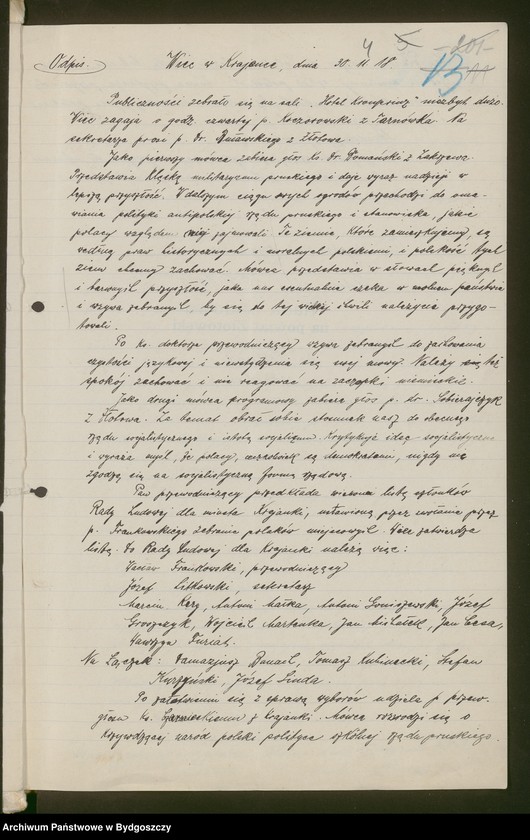 4 5 -201-
Odpis. Wiec w Krajence, dnia 30 11 18 B
Publiczności zebrało się na sali „Hotel Kronprinz" niezbyt dużo.
Wiec zagaja o godz. czwartej p. Koczorowski z Tarnówka. Na
sekretarza prosi p. dr. z Złotowa.
Jako pierwszy mówca zabiera głos ks. dr. Domański z Zakrzewa.
Przedstawia klęskę militaryzmu pruskiego i daje wyraz nadzieji w
lepszą przyszłość. W dalszym ciągu swych wywodów przechodzi do oma-
wiania polityki antipolskiej rządu pruskiego i stanowiska, jakie
polacy względem niej zajmowali. Te ziemie, które zamieszkujemy, są
według praw historycznych i moralnych polskiemi, i polskość tych
ziem chcemy zachować. Mówca przedstawia w słowach pięknych
i barwnych przyszłość, jaka nas ewentualnie czeka w wolnem państwie
i wzywa zebranych, by się do tej wielkiej chwili należycie przygo-
towali.
Po ks. doktorze przewodniczący wzywa zebranych do zachowania
czystości językowej i niewstydzenia się swej mowy. Należy się też
spokój zachować i nie reagować na zaczepki niemieckie.
Jako drugi mówca programowy zabiera głos p. dr. Sobierajczyk
z Złotowa. Za temat obrał sobie stosunek nasz do obecnego
rządu socjalistycznego i istotę socjalizmu. Krytykuje ideę socjalistyczną
i wyraża myśl, że polacy, aczkolwiek są demokratami, nigdy nie
zgodzą się na socjalistyczną formę rządową.
Pan przewodniczący przedkłada wiecowi listę członków
Rady Ludowej dla miasta Krajenki, ustawioną przez zwołanie przez
p. Frankowskiego zebranie polaków miejscowych. Wiec zatwierdza
listę. Do Rady Ludowej dla Krajenki należą więc:
Wacław Frankowski, przewodniczący
Józef Litkowski, sekretarz
Marcin Kerz, Antoni Małka, Antoni, Józef
Wojciech Martenka, Jan, Jan
Wawrzyn
Na Łączek: Tomasz, Stefan
Józef Linda.
Po załatwieniu się z sprawą wyborów udziela p. przew.
głosu ks. z Krajenki. Mówca rozwodzi się o
krzywdzącej naród polski polityce szkolnej rządu pruskiego.
Archiwum Państwowe w Bydgoszczy